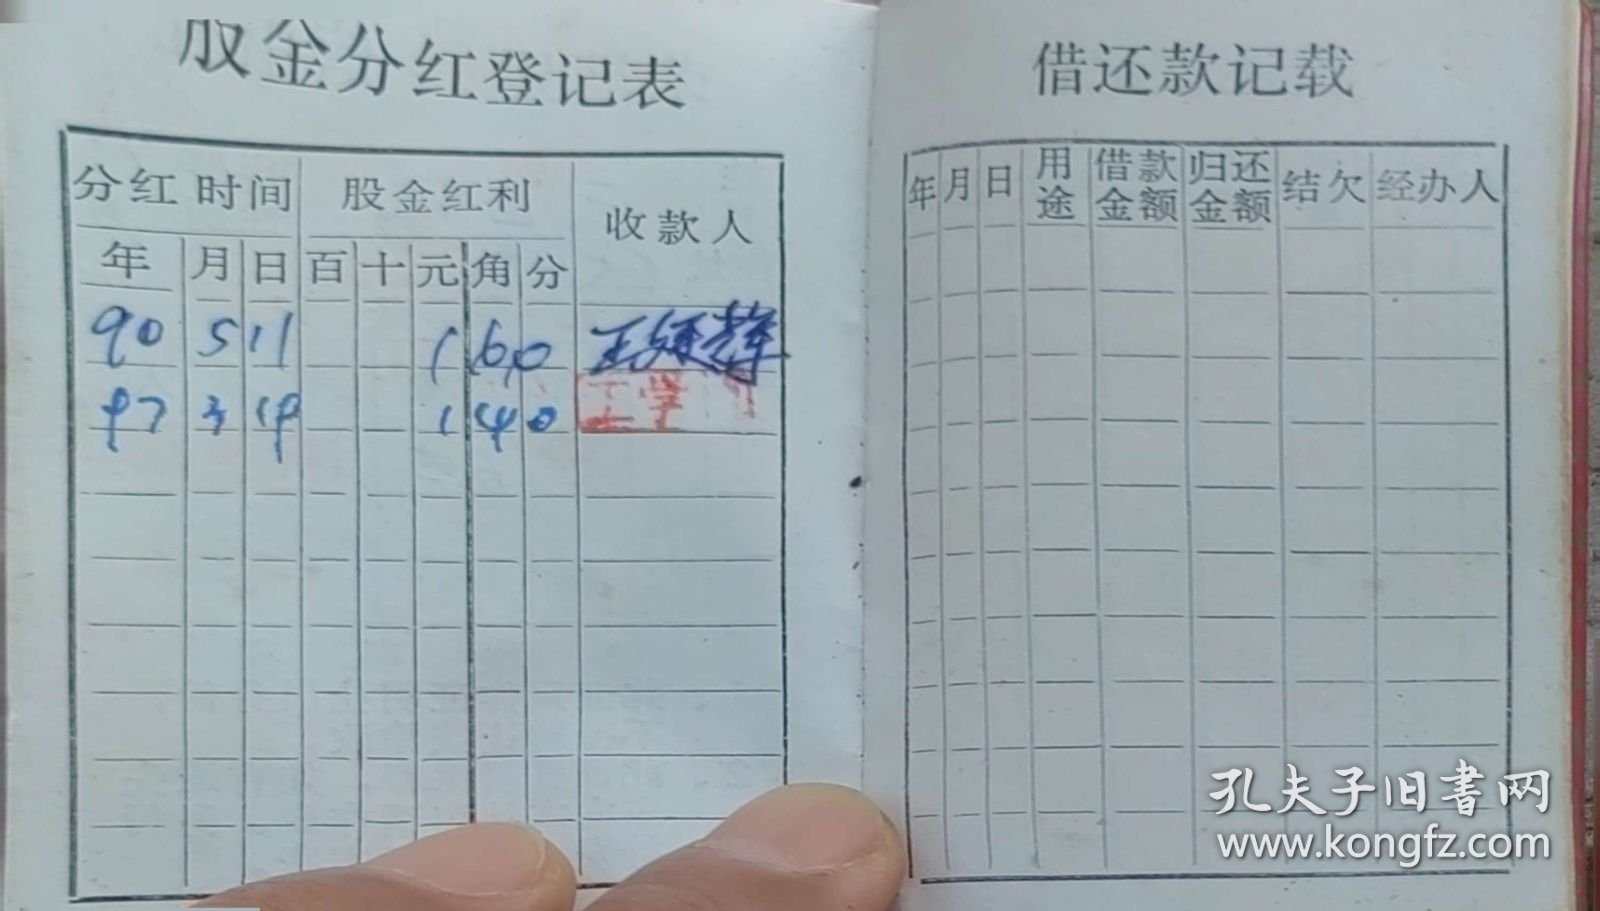 股金分红登记表
分红时间 股金红利 收款人
年 月 日 百 十 元 角 分
90 5 11 1 6 0 王
97 3 19 1 4 0 王学
借还款记载
年 月 日 用途 借款金额 归还金额 结欠 经办人
孔夫子旧书网
www.kongfz.com